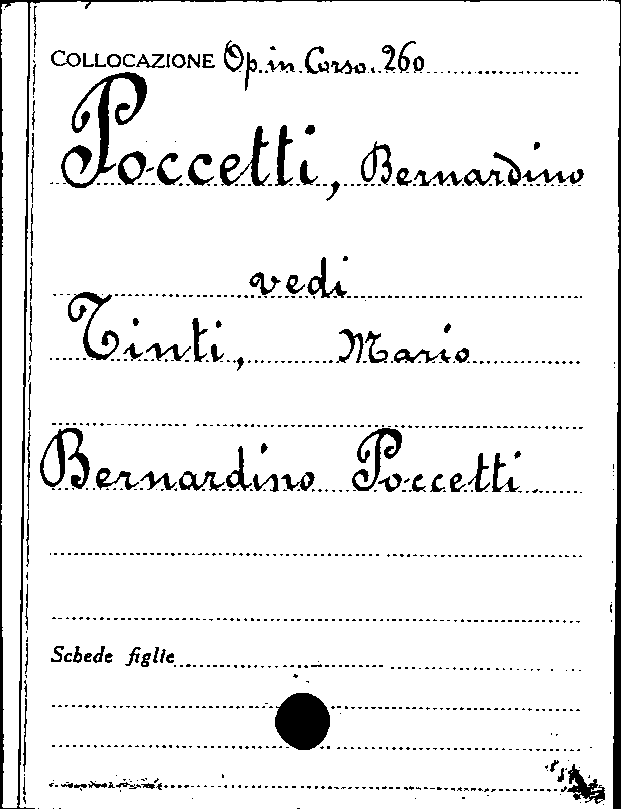 COLLOCAZIONE Op. in Corso. 260
Poccetti, Bernardino
vedi
Tinti, Mario
Bernardino Poccetti
Schede figlie